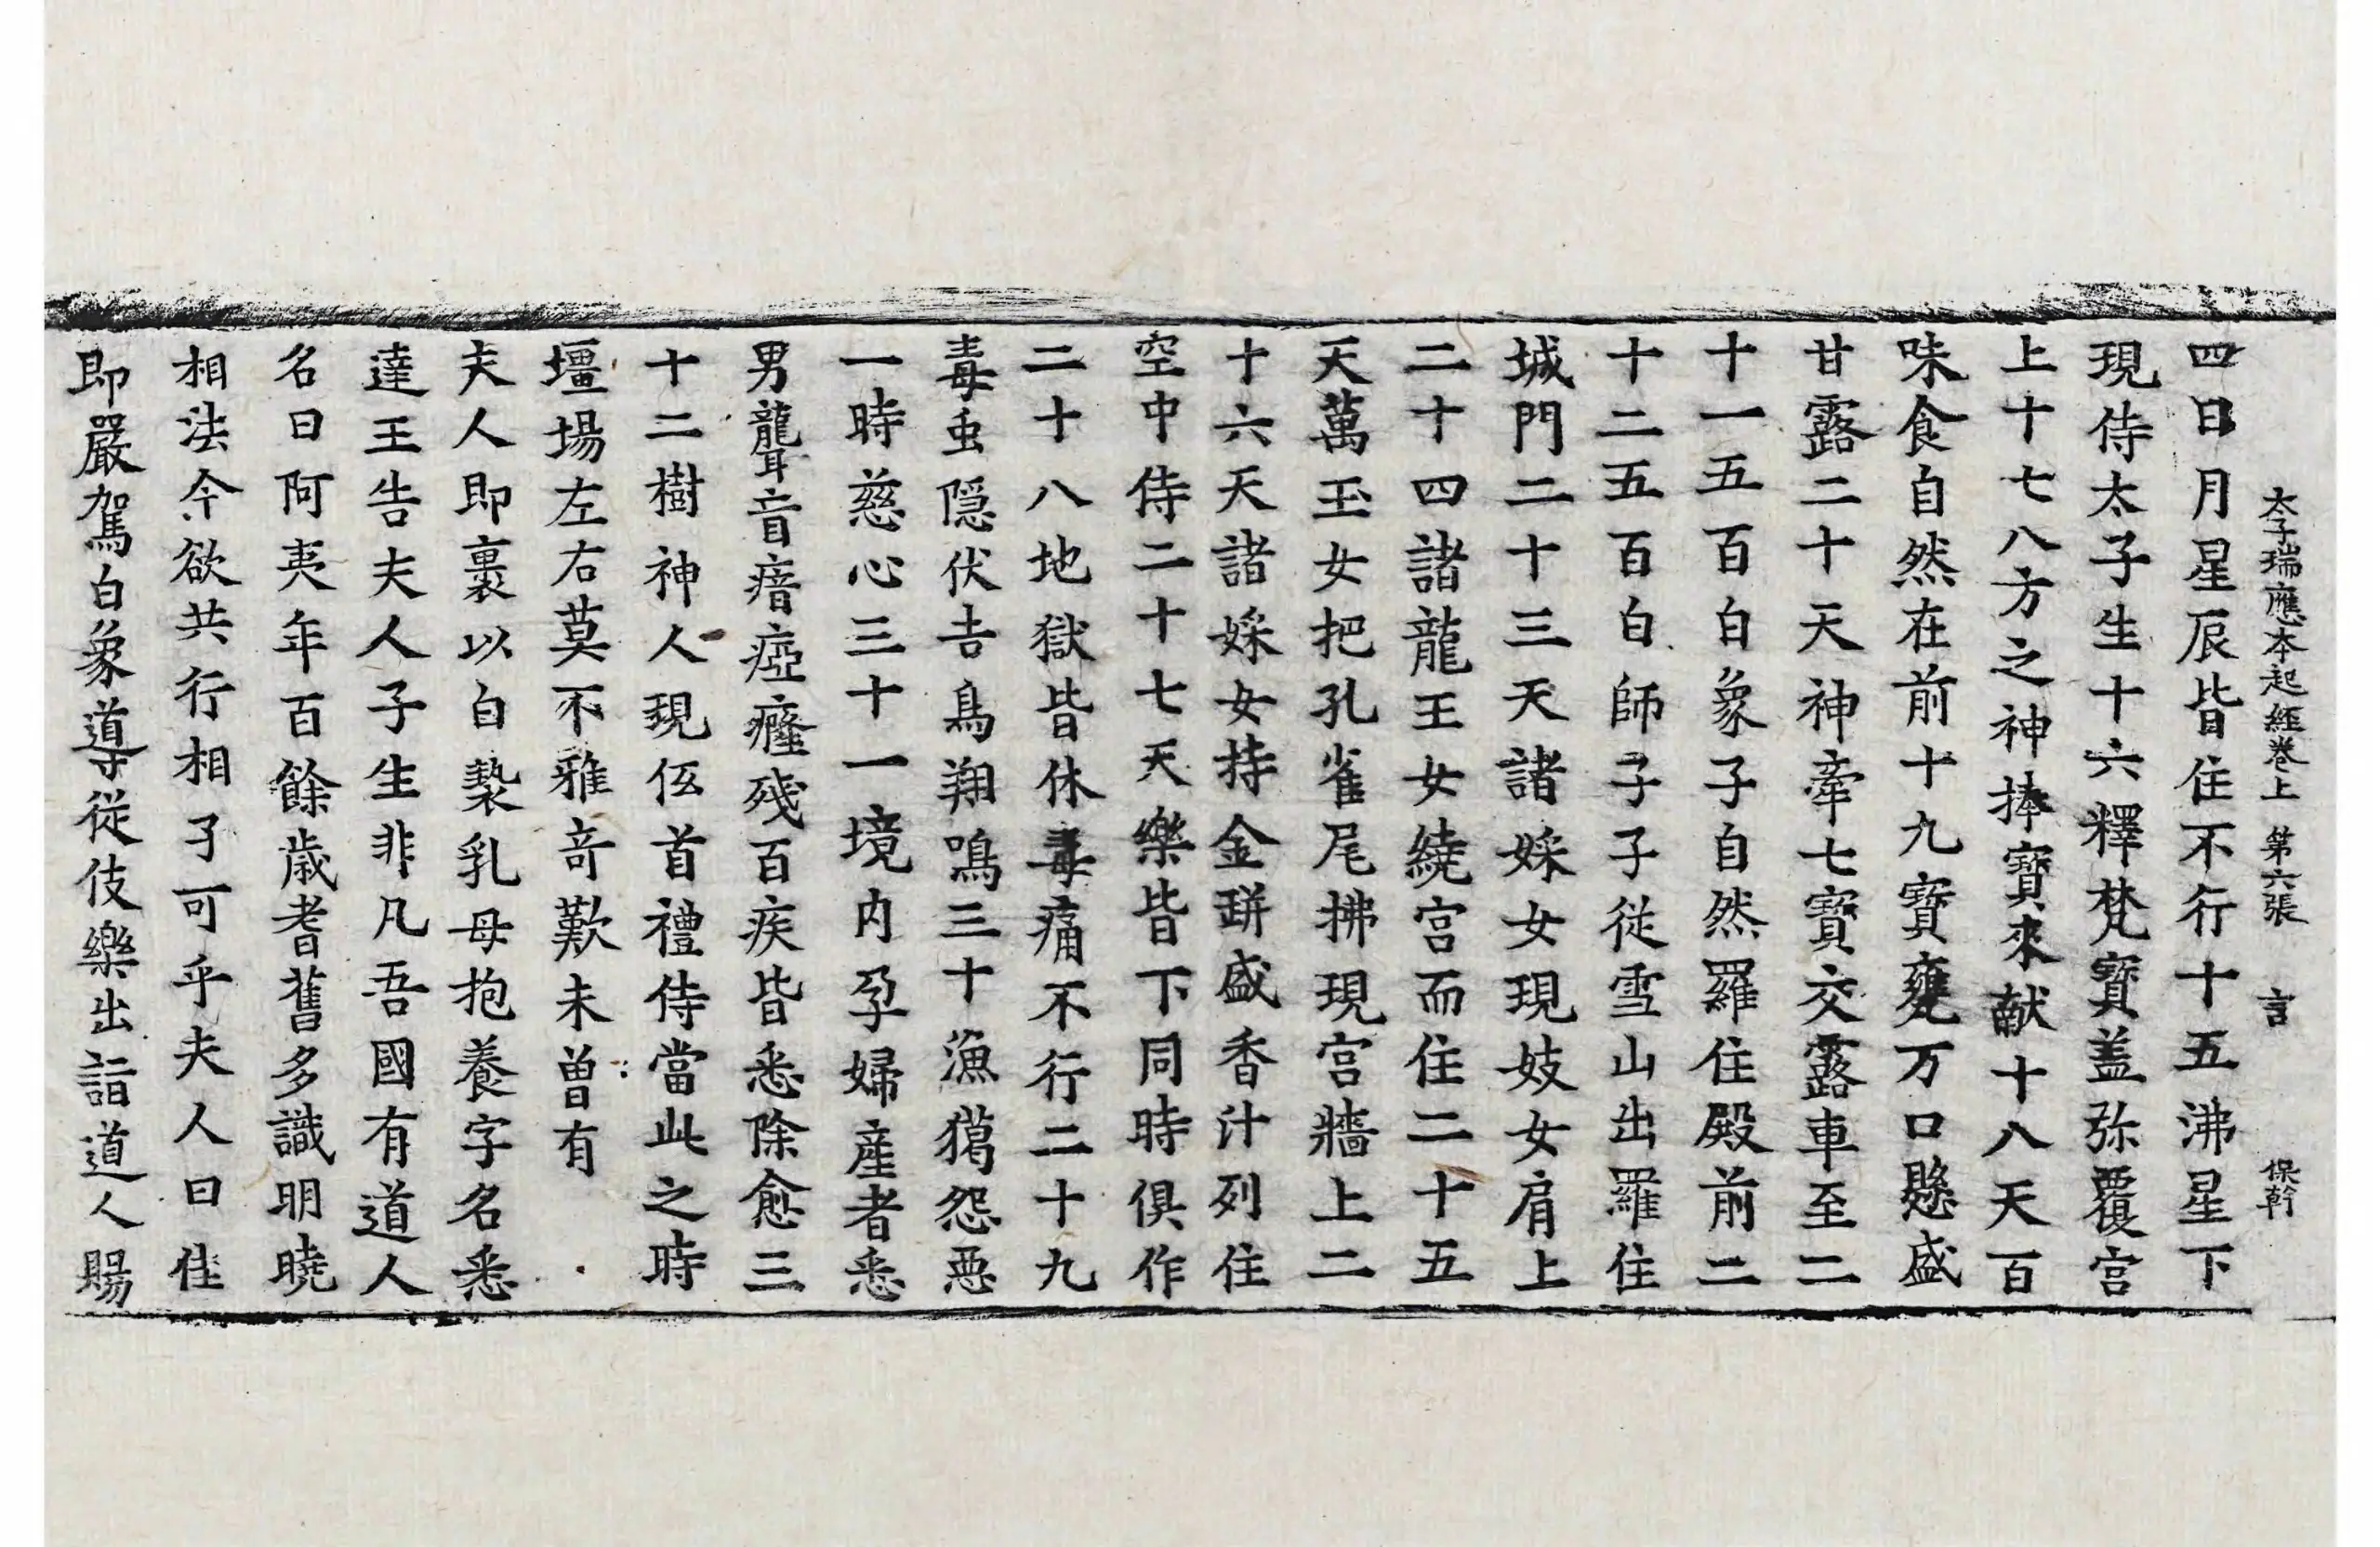 太子瑞應本起經卷上 第六張 言 保幹
四日月星辰皆住不行十五沸星下
現侍太子生十六釋梵寶盖弥覆宮
上十七八方之神捧寶來献十八天百
味食自然在前十九寶甕万口懸盛
甘露二十天神牽七寶交露車至二
十一五百白象子自然羅住殿前二
十二五百白師子子従雪山出羅住
城門二十三天諸婇女現妓女肩上
二十四諸龍王女繞宮而住二十五
天萬玉女把孔雀尾拂現宮牆上二
十六天諸婇女持金缾盛香汁列住
空中侍二十七天樂皆下同時俱作
二十八地獄皆休毒痛不行二十九
毒虫隠伏吉鳥翔鳴三十漁獦怨惡
一時慈心三十一境内孕婦産者悉
男聾盲瘖瘂癃殘百疾皆悉除愈三
十二樹神人現伍首禮侍當此之時
壃場左右莫不雅竒歎未曾有
夫人即裹以白㲲乳母抱養字名悉
達王告夫人子生非凡吾國有道人
名曰阿夷年百餘歳耆舊多識明曉
相法今欲共行相子可乎夫人曰佳
即嚴駕白象導従伎樂出詣道人賜